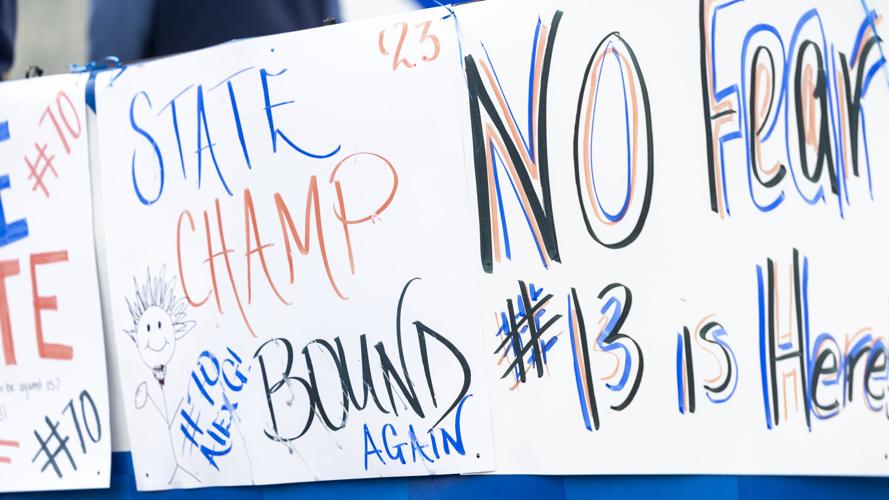 #70
TE
#70
'23
STATE
CHAMP
BOUND
AGAIN
#70
ALEX G!
NO Fear
#13 is Here